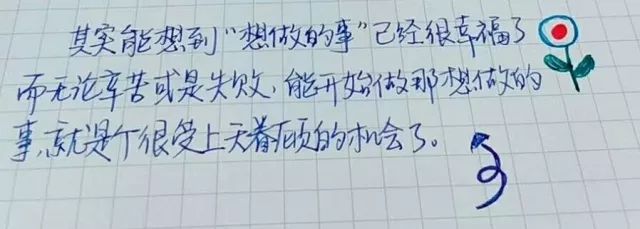 其实能想到“想做的事”已经很幸福了
而无论辛苦或是失败，能开始做那想做的
事，就是个很受上天眷顾的机会了。